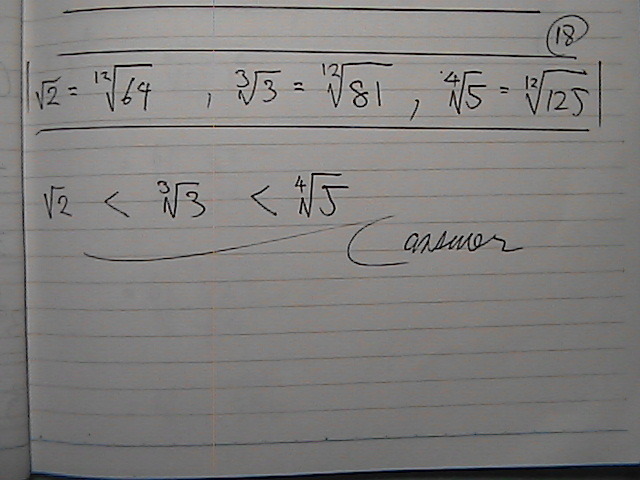 18
√2 = ¹²√64 , ³√3 = ¹²√81 , ⁴√5 = ¹²√125
√2 < ³√3 < ⁴√5
answer